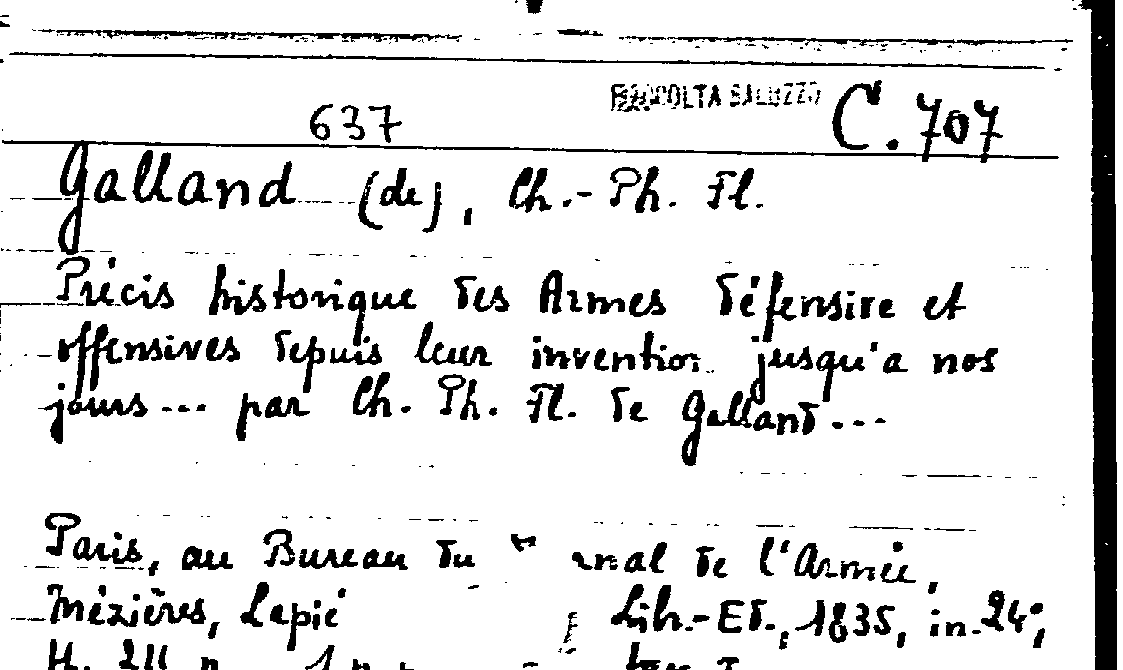 637 RACCOLTA SALUZZO C. 707
Galland (de), Ch.-Ph. Fl.
Précis historique des Armes défensive et
offensives depuis leur invention jusqu'a nos
jours... par Ch. Ph. Fl. de Galland...
Paris, au Bureau du de l'Armée,
Mézières, Lepié Lib.-Ed., 1835, in-24°,